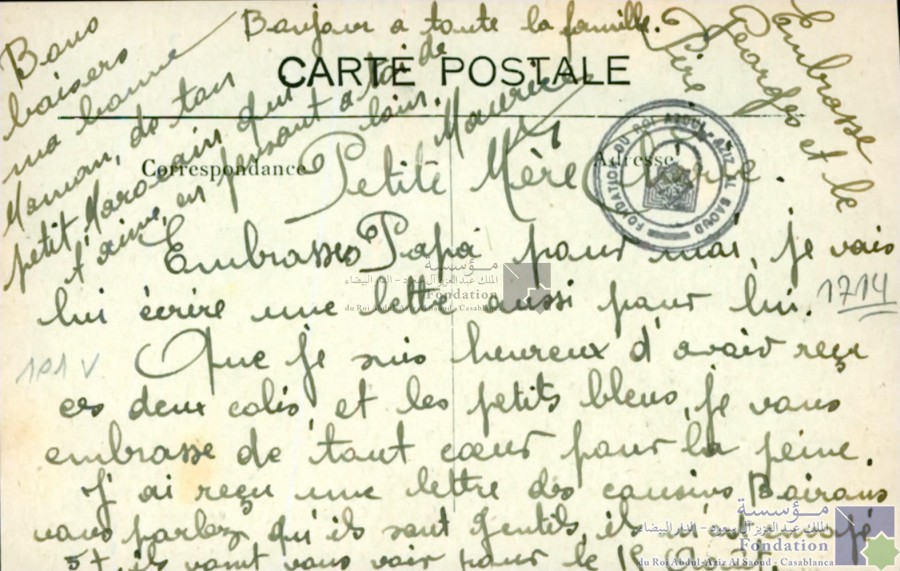 Bonjour a toute la famille.
CARTE POSTALE
Correspondance
Adresse
Bons
baisers
ma bonne
Maman, de ton
petit Marocain qui
t'aime, en pensant à toi de
loin. Maurice
Embrasse
Georges et le
Père
Petite Mère Chérie.
Embrasses Papa pour moi, je vais
lui écrire une lettre aussi pour lui.
1714
Que je suis heureux d'avoir reçu
101 V
ces deux colis, et les petits bleus, je vous
embrasse de tout cœur pour la peine.
J'ai reçu une lettre des cousins
vous parlez qu'ils sont gentils, ils m'ont envoyé
et ils vont vous voir pour le 15
FONDATION DU ROI ABDUL-AZIZ AL SAOUD
مؤسسة
الملك عبد العزيز آل سعود - الدار البيضاء
Fondation
du Roi Abdul-Aziz Al Saoud - Casablanca
مؤسسة
الملك عبد العزيز آل سعود - الدار البيضاء
Fondation
du Roi Abdul-Aziz Al Saoud - Casablanca